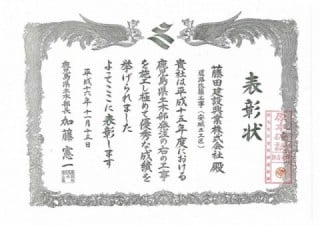 表彰状
藤田建設興業株式会社 殿
道路改築工事(安城五工区)
貴社は平成十五年度における
鹿児島県土木部発注の右の工事
を施工し極めて優秀な成績を
挙げられました
よってここに表彰します
平成十六年十一月十五日
鹿児島県土木部長 加藤憲一